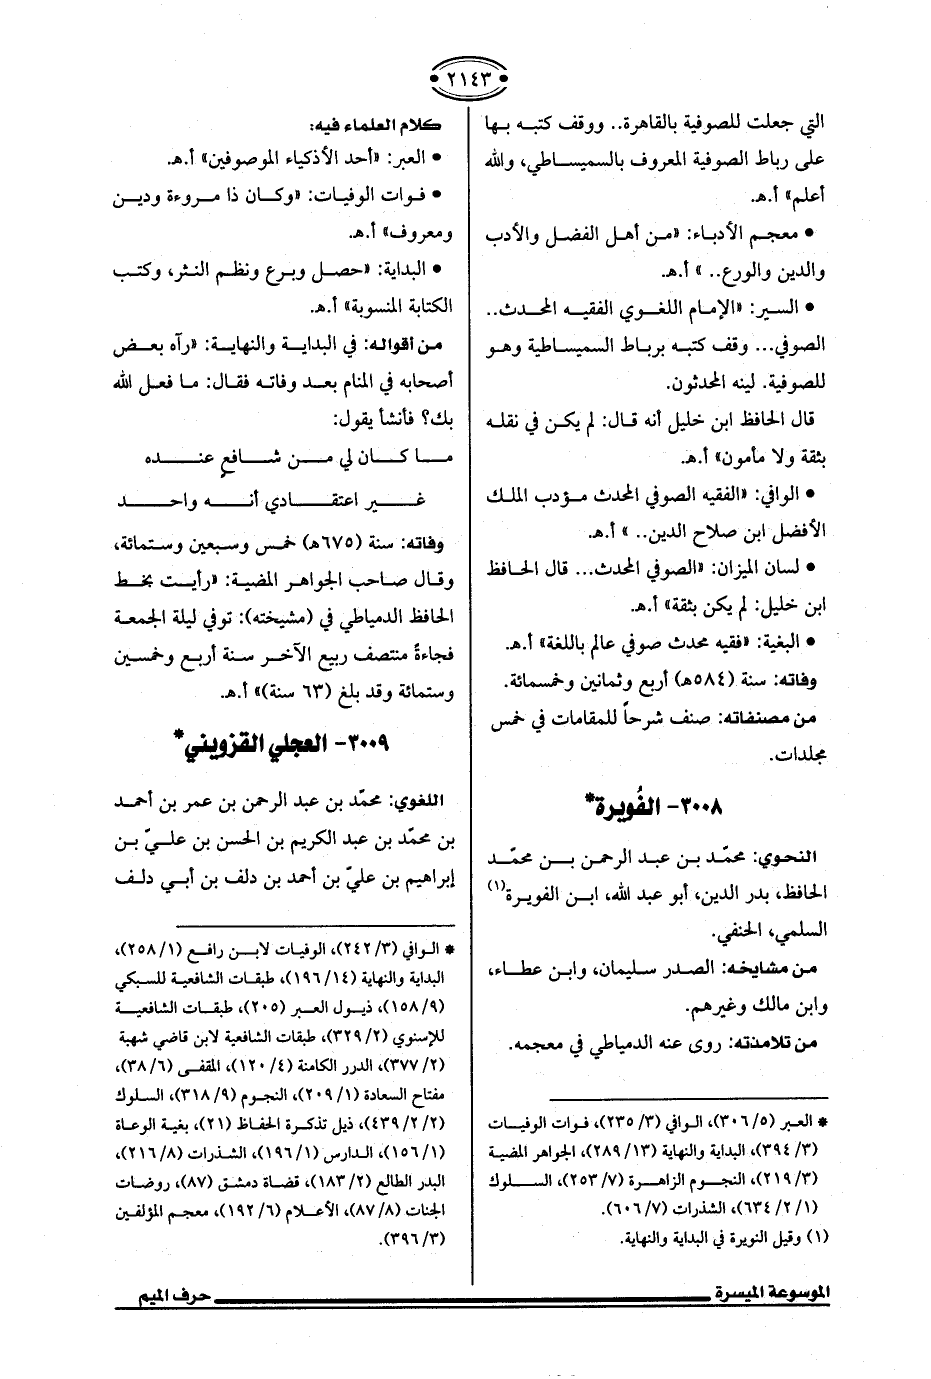 ٢١٤٣
التي جعلت للصوفية بالقاهرة.. ووقف كتبه بها
على رباط الصوفية المعروف بالسميساطي، والله
أعلم» أ.هـ.
• معجم الأدباء: «من أهل الفضل والأدب
والدين والورع.. » أ.هـ.
• السير: «الإمام اللغوي الفقيه المحدث..
الصوفي... وقف كتبه برباط السميساطية وهو
للصوفية. لينه المحدثون.
قال الحافظ ابن خليل أنه قال: لم يكن في نقله
بثقة ولا مأمون» أ.هـ.
• الوافي: «الفقيه الصوفي المحدث مؤدب الملك
الأفضل ابن صلاح الدين.. » أ.هـ.
• لسان الميزان: «الصوفي المحدث... قال الحافظ
ابن خليل: لم يكن بثقة» أ.هـ.
• البغية: «فقيه محدث صوفي عالم باللغة» أ.هـ.
وفاته: سنة (٥٨٤هـ) أربع وثمانين وخمسمائة.
من مصنفاته: صنف شرحاً للمقامات في خمس
مجلدات.
٣٠٠٨- الفُويرة*
النحوي: محمّد بن عبد الرحمن بن محمّد
الحافظ، بدر الدين، أبو عبد الله، ابن الفويرة(١)
السلمي، الحنفي.
من مشايخه: الصدر سليمان، وابن عطاء،
وابن مالك وغيرهم.
من تلامذته: روى عنه الدمياطي في معجمه.
* العبر (٣٠٦/٥)، الوافي (٢٣٥/٣)، فوات الوفيات
(٣٩٤/٣)، البداية والنهاية (٢٨٩/١٣)، الجواهر المضية
(٢١٩/٣)، النجوم الزاهرة (٢٥٣/٧)، السلوك
(٦٣٤/٢/١)، الشذرات (٦٠٦/٧).
(١) وقيل النويرة في البداية والنهاية.
كلام العلماء فيه:
• العبر: «أحد الأذكياء الموصوفين» أ.هـ.
• فوات الوفيات: «وكان ذا مروءة ودين
ومعروف» أ.هـ.
• البداية: «حصل وبرع ونظم النثر، وكتب
الكتابة المنسوبة» أ.هـ.
من أقواله: في البداية والنهاية: «رآه بعض
أصحابه في المنام بعد وفاته فقال: ما فعل الله
بك؟ فأنشأ يقول:
ما كان لي من شافعٍ عنده
غير اعتقادي أنه واحد
وفاته: سنة (٦٧٥هـ) خمس وسبعين وستمائة،
وقال صاحب الجواهر المضية: «رأيت بخط
الحافظ الدمياطي في (مشيخته): توفي ليلة الجمعة
فجاءةً منتصف ربيع الآخر سنة أربع وخمسين
وستمائة وقد بلغ (٦٣ سنة)» أ.هـ.
٣٠٠٩- العجلي القزويني*
اللغوي: محمّد بن عبد الرحمن بن عمر بن أحمد
بن محمّد بن عبد الكريم بن الحسن بن عليّ بن
إبراهيم بن عليّ بن أحمد بن دلف بن أبي دلف
* الوافي (٢٤٢/٣)، الوفيات لابن رافع (٢٥٨/١)،
البداية والنهاية (١٩٦/١٤)، طبقات الشافعية للسبكي
(١٥٨/٩)، ذيول العبر (٢٠٥)، طبقات الشافعية
للإسنوي (٣٢٩/٢)، طبقات الشافعية لابن قاضي شهبة
(٣٧٧/٢)، الدرر الكامنة (١٢٠/٤)، المقفى (٣٨/٦)،
مفتاح السعادة (٢٠٩/١)، النجوم (٣١٨/٩)، السلوك
(٤٣٩/٢/٢)، ذيل تذكرة الحفاظ (٢١)، بغية الوعاة
(١٥٦/١)، الدارس (١٩٦/١)، الشذرات (٢١٦/٨)،
البدر الطالع (١٨٣/٢)، قضاة دمشق (٨٧)، روضات
الجنات (٨٧/٨)، الأعلام (١٩٢/٦)، معجم المؤلفين
(٣٩٦/٣).
الموسوعة الميسرة
حرف الميم